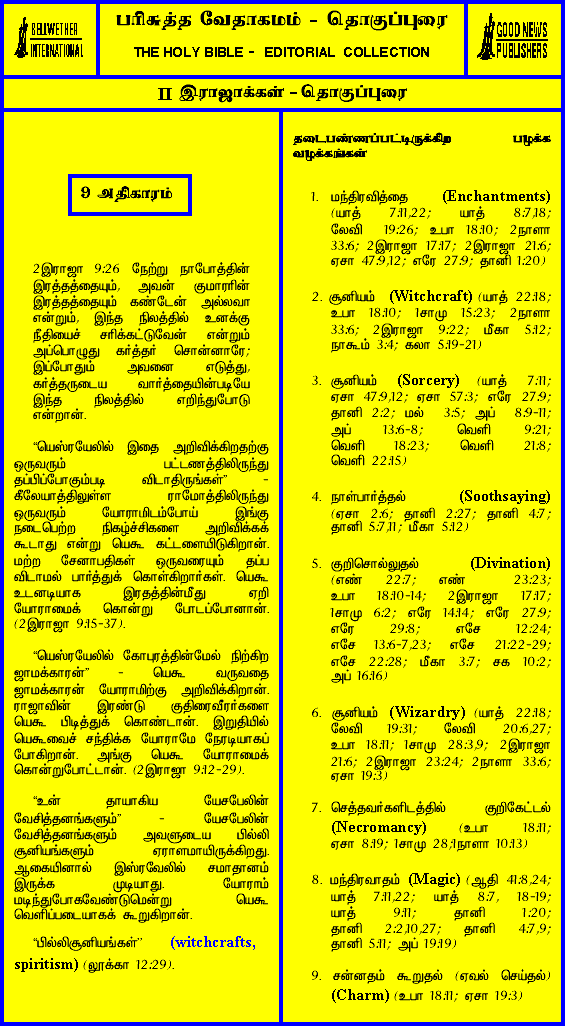 BELLWETHER
INTERNATIONAL
பரிசுத்த வேதாகமம் - தொகுப்புரை
THE HOLY BIBLE - EDITORIAL COLLECTION
GOOD NEWS
PUBLISHERS
II இராஜாக்கள் - தொகுப்புரை
9 அதிகாரம்
2இராஜா 9:26 நேற்று நாபோத்தின்
இரத்தத்தையும், அவன் குமாரரின்
இரத்தத்தையும் கண்டேன் அல்லவா
என்றும், இந்த நிலத்தில் உனக்கு
நீதியைச் சரிக்கட்டுவேன் என்றும்
அப்பொழுது கர்த்தர் சொன்னாரே;
இப்போதும் அவனை எடுத்து,
கர்த்தருடைய வார்த்தையின்படியே
இந்த நிலத்தில் எறிந்துபோடு
என்றான்.
“யெஸ்ரயேலில் இதை அறிவிக்கிறதற்கு
ஒருவரும் பட்டணத்திலிருந்து
தப்பிப்போகும்படி விடாதிருங்கள்” -
கீலேயாத்திலுள்ள ராமோத்திலிருந்து
ஒருவரும் யோராமிடம்போய் இங்கு
நடைபெற்ற நிகழ்ச்சிகளை அறிவிக்கக்
கூடாது என்று யெகூ கட்டளையிடுகிறான்.
மற்ற சேனாபதிகள் ஒருவரையும் தப்ப
விடாமல் பார்த்துக் கொள்கிறார்கள். யெகூ
உடனடியாக இரதத்தின்மீது ஏறி
யோராமைக் கொன்று போடப்போனான்.
(2இராஜா 9:15-37).
“யெஸ்ரயேலில் கோபுரத்தின்மேல் நிற்கிற
ஜாமக்காரன்” - யெகூ வருவதை
ஜாமக்காரன் யோராமிற்கு அறிவிக்கிறான்.
ராஜாவின் இரண்டு குதிரைவீரர்களை
யெகூ பிடித்துக் கொண்டான். இறுதியில்
யெகூவைச் சந்திக்க யோராமே நேரடியாகப்
போகிறான். அங்கு யெகூ யோராமைக்
கொன்றுபோட்டான். (2இராஜா 9:12-29).
“உன் தாயாகிய யேசபேலின்
வேசித்தனங்களும்” - யேசபேலின்
வேசித்தனங்களும் அவளுடைய பில்லி
சூனியங்களும் ஏராளமாயிருக்கிறது.
ஆகையினால் இஸ்ரவேலில் சமாதானம்
இருக்க முடியாது. யோராம்
மடிந்துபோகவேண்டுமென்று யெகூ
வெளிப்படையாகக் கூறுகிறான்.
“பில்லிசூனியங்கள்” (witchcrafts,
spiritism) (லூக்கா 12:29).
தடைபண்ணப்பட்டிருக்கிற பழக்க
வழக்கங்கள்
1. மந்திரவித்தை (Enchantments)
(யாத் 7:11,22; யாத் 8:7,18;
லேவி 19:26; உபா 18:10; 2நாளா
33:6; 2இராஜா 17:17; 2இராஜா 21:6;
ஏசா 47:9,12; எரே 27:9; தானி 1:20)
2. சூனியம் (Witchcraft) (யாத் 22:18;
உபா 18:10; 1சாமு 15:23; 2நாளா
33:6; 2இராஜா 9:22; மீகா 5:12;
நாகூம் 3:4; கலா 5:19-21)
3. சூனியம் (Sorcery) (யாத் 7:11;
ஏசா 47:9,12; ஏசா 57:3; எரே 27:9;
தானி 2:2; மல் 3:5; அப் 8:9-11;
அப் 13:6-8; வெளி 9:21;
வெளி 18:23; வெளி 21:8;
வெளி 22:15)
4. நாள்பார்த்தல் (Soothsaying)
(ஏசா 2:6; தானி 2:27; தானி 4:7;
தானி 5:7,11; மீகா 5:12)
5. குறிசொல்லுதல் (Divination)
(எண் 22:7; எண் 23:23;
உபா 18:10-14; 2இராஜா 17:17;
1சாமு 6:2; எரே 14:14; எரே 27:9;
எரே 29:8; எசே 12:24;
எசே 13:6-7,23; எசே 21:22-29;
எசே 22:28; மீகா 3:7; சக 10:2;
அப் 16:16)
6. சூனியம் (Wizardry) (யாத் 22:18;
லேவி 19:31; லேவி 20:6,27;
உபா 18:11; 1சாமு 28:3,9; 2இராஜா
21:6; 2இராஜா 23:24; 2நாளா 33:6;
ஏசா 19:3)
7. செத்தவர்களிடத்தில் குறிகேட்டல்
(Necromancy) (உபா 18:11;
ஏசா 8:19; 1சாமு 28;1நாளா 10:13)
8. மந்திரவாதம் (Magic) (ஆதி 41:8,24;
யாத் 7:11,22; யாத் 8:7, 18-19;
யாத் 9:11; தானி 1:20;
தானி 2:2,10,27; தானி 4:7,9;
தானி 5:11; அப் 19:19)
9. சன்னதம் கூறுதல் (ஏவல் செய்தல்)
(Charm) (உபா 18:11; ஏசா 19:3)